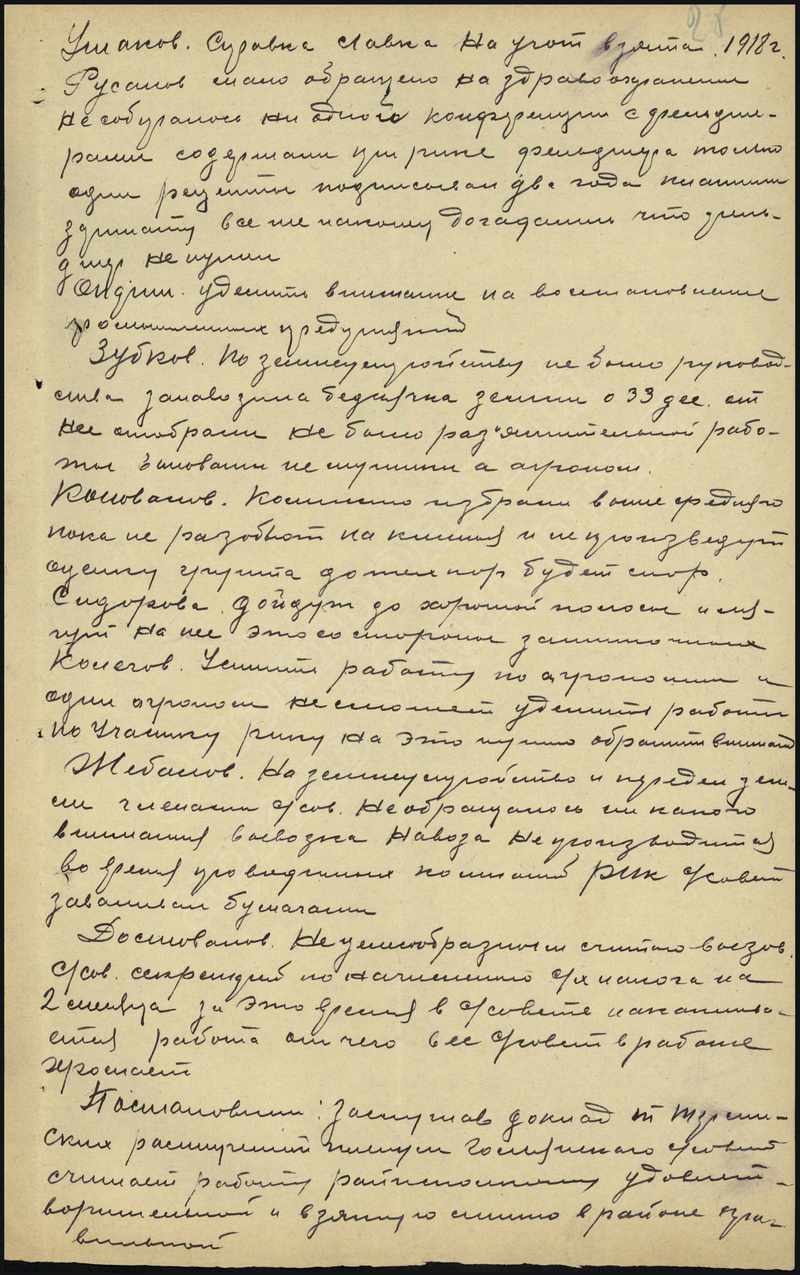 28
Ушаков. Суровка ставка на учот взята. 1918 г.
Русанов мало обращено на здравоохранении
не собиралось ни одной конференции с фельдше-
рами содержали при рике фельдшера только
одни рецепты подписовал два года платили
зарплату все же наконец догадались что фель-
дшер не нужен
Ондрин. уделить внимание на востановление
промышленных предприятий
Зубков. По землеустройству не было руковод-
ства занавозила беднячка земли 0 33 дес. от
нее отобрали не было раз"яснительной рабо-
ты виноваты не мужики а агроном.
Коновалов. Комиссию избрали выше среднего
пока не разобьют на клинья и не произведут
оценку грунта до тех пор будет спор.
Сидорова. дойдут до хорошей полосы и ля-
гут на нее это со стороны зажиточных
Колегов. Усилить работу по агрономии и
один агроном не сможет уделить работы
по участку рику на это нужно обратить внимание
Жебалов. На землеустройство и передел зем-
ли членами с/сов. не обращалось никакого
внимания вывозка навоза не производится
во время проведенных компаний РИК с/совет
заваливал бумагами
Достовалов. Не целесообразным считаю вызов.
с/сов. секретарей по начислению с/х налога на
2 месяца за это время в с/совете накаплива-
ется работа от чего все с/совет в работе
хромает
Постановили: заслушав доклад т.
ских расширенный пленум с/совета
считает работу райисполкома удовлет-
ворительной и взятую линию в районе пра-
вильной